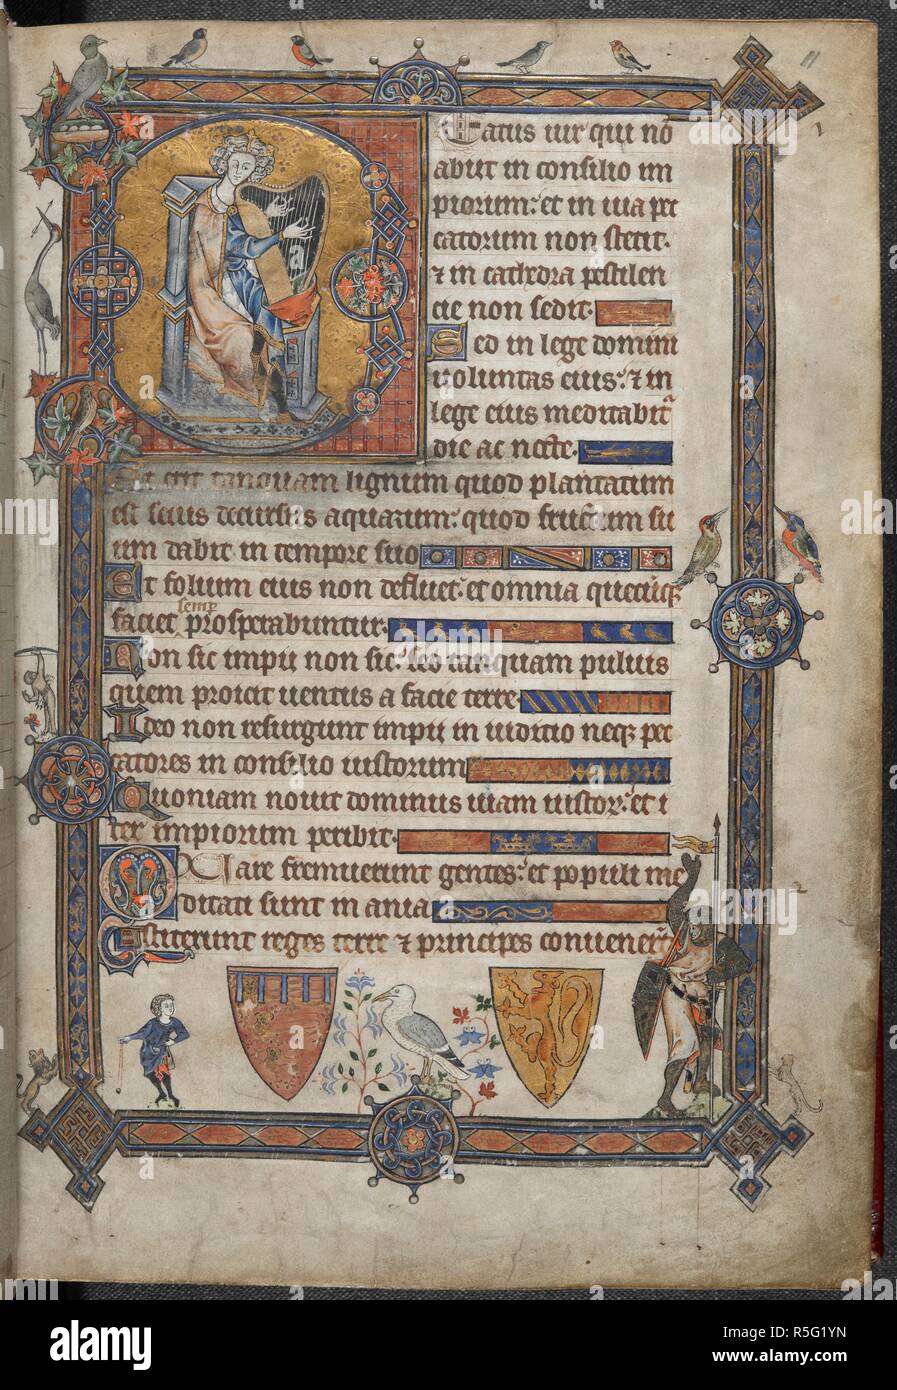 11
1
Eatus uir qui nō
abiit in consilio im
piorum: et in uia pec
catorum non stetit.
& in cathedra pestilen
cie non sedit.
Sed in lege domini
uoluntas eius: & in
lege eius meditabit᷑
die ac nocte.
Et erit tanquam lignum quod plantatum
est secus decursus aquarum: quod fructum su
um dabit in tempore suo
Et folium eius non defluet: et omnia quecūq;
semp̄
faciet prosperabuntur.
Non sic impii non sic: sed tanquam puluis
quem proicit uentus a facie terre
Ideo non resurgunt impii in iudicio neq; pec
catores in consilio iustorum
Quoniam nouit dominus uiam iustoꝝ: et i
ter impiorum peribit.
Quare fremuerunt gentes: et populi me
ditati sunt inania
Astiterunt reges terre & principes conuenerūt
alamy
Image ID: R5G1YN
www.alamy.com